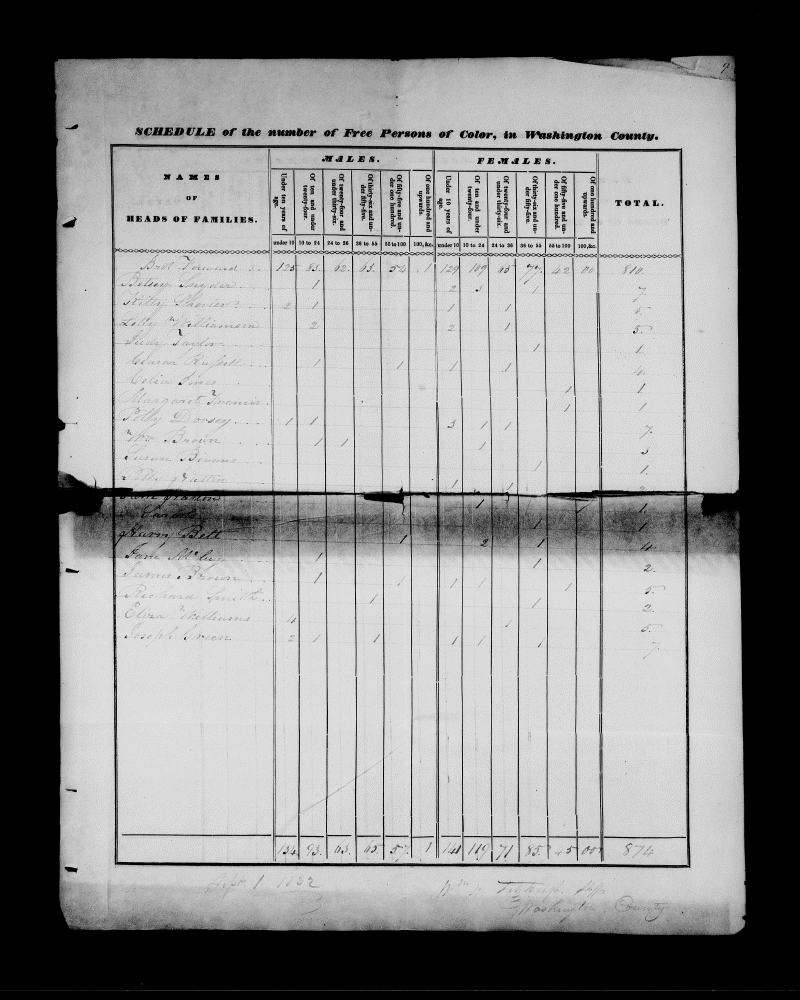 9
SCHEDULE of the number of Free Persons of Color, in Washington County.
NAMES OF HEADS OF FAMILIES.
MALES.
FEMALES.
TOTAL.
Under ten years of age. Of ten and under twenty-four. Of twenty-four and under thirty-six. Of thirty-six and under fifty-five. Of fifty-five and under one hundred. Of one hundred and upwards. Under 10 years of age. Of ten and under twenty-four. Of twenty-four and under thirty-six. Of thirty-six and under fifty-five. Of fifty-five and under one hundred. Of one hundred and upwards.
under 10 10 to 24 24 to 36 36 to 55 55 to 100 100, &c. under 10 10 to 24 24 to 36 36 to 55 55 to 100 100, &c.
Brot Forward 125. 85. 62. 63. 54. 1 129 109 65 77. 42 00 810.
Betsey Snyder 1 2 3 1 7
Kitty 2 1 1 1 5.
Letty Williamson 2 2 1 5.
Judy Taylor 1 1.
Russell 1 1 1 1 4.
Celia Sims 1 1
Margaret Francis 1 1
Polly Dorsey 1 1 3 1 1 7.
Wm Brown 1 1 1 3
Susan 1 1.
Polly 1 1 2
1 1
Sarah 1 1
Bell 1 2 1 4.
1 1 2.
James Brown 1 1 1 1 1 5.
Richard Smith 1 1 2.
Eliza Williams 4 1 5.
Joseph Green 2 1 1 1 1 1 7.
134 93. 63. 65. 57. 1 141 119 71 85. 45 00 874
Sept 1 1832
Washington County